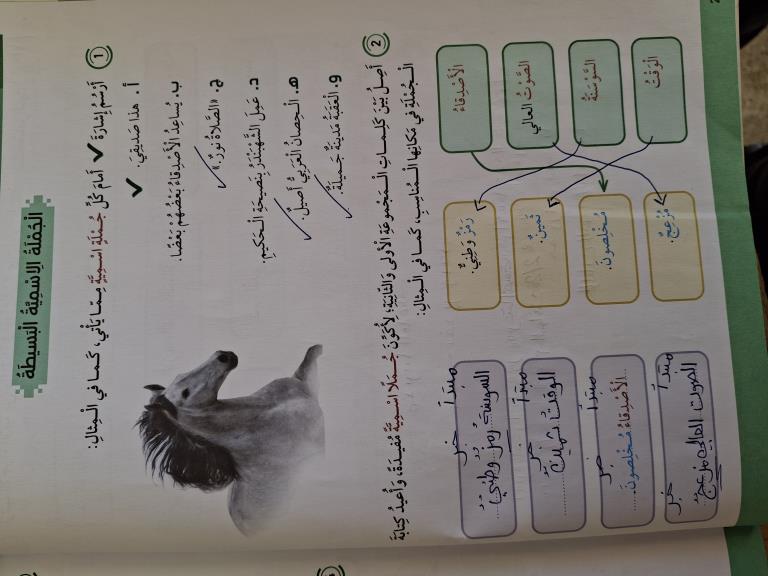 الْجُمْلَةُ الِاسْمِيَّةُ الْبَسِيطَةُ
1 أَرْسُمُ إِشَارَةَ ✔ أَمَامَ كُلِّ جُمْلَةٍ اسْمِيَّةٍ مِمَّا يَأْتِي، كَمَا فِي الْمِثَالِ:
أ. هٰذَا صَدِيقِي. ✔
ب. يُسَاعِدُ الْأَصْدِقَاءُ بَعْضُهُمْ بَعْضًا.
ج. «الصَّلَاةُ نُورٌ».
د. عَمِلَ السَّهْبَنْدَرُ بِنَصِيحَةِ الْحَكِيمِ.
هـ. الْحِصَانُ الْعَرَبِيُّ أَصِيلٌ.
و. الْعَقَبَةُ مَدِينَةٌ جَمِيلَةٌ.
2 أَصِلُ بَيْنَ كَلِمَاتِ الْمَجْمُوعَةِ الْأُولَى وَالثَّانِيَةِ؛ لِأُكَوِّنَ جُمَلًا اسْمِيَّةً مُفِيدَةً، وَأُعِيدُ كِتَابَةَ
الْجُمْلَةِ فِي مَكَانِهَا الْمُنَاسِبِ، كَمَا فِي الْمِثَالِ:
الْأَصْدِقَاءُ
الصَّوْتُ الْعَالِي
السَّوْسَنَةُ
الْوَقْتُ
رَمْزٌ وَطَنِيٌّ.
ثَمِينٌ.
مُخْلِصُونَ.
مُزْعِجٌ.
مبتدأ خبر
السوسنة رمز وطنيٌّ
مبتدأ خبر
الوقتُ ثمينٌ
مبتدأ خبر
الْأَصْدِقَاءُ مُخْلِصُونَ.
مبتدأ خبر
الصوت العالي مزعجٌ